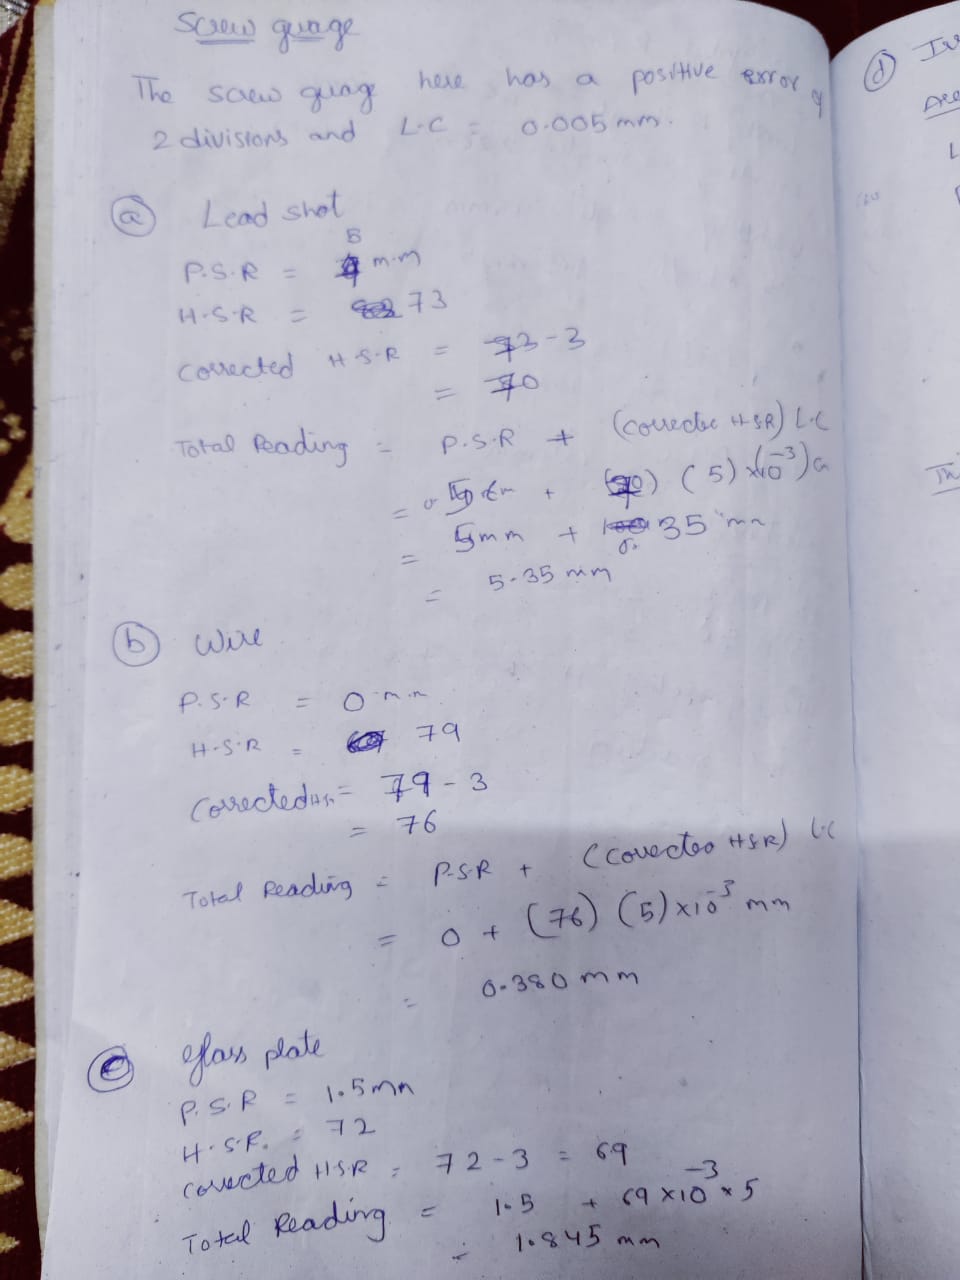 Screw guage
The screw guage here has a positive error of
2 divisions and L.C = 0.005 mm.
(a) Lead shot
P.S.R = 5 m.m
H.S.R = 73
Corrected H.S.R = 73-3
= 70
Total Reading = P.S.R + (corrected HSR) L.C
= (70) (5) x(10^-3)
= 5mm + 0.35 mm
= 5.35 mm
(b) Wire
P.S.R = 0 m.m
H.S.R = 79
Corrected HSR = 79 - 3
= 76
Total Reading = P.S.R + (corrected HSR) LC
= 0 + (76) (5) x10^-3 mm
= 0.380 mm
(c) glass plate
P.S.R = 1.5mm
H.S.R. = 72
corrected HSR = 72-3 = 69
Total Reading = 1.5 + 69 x10^-3 x 5
= 1.845 mm
(d)
L